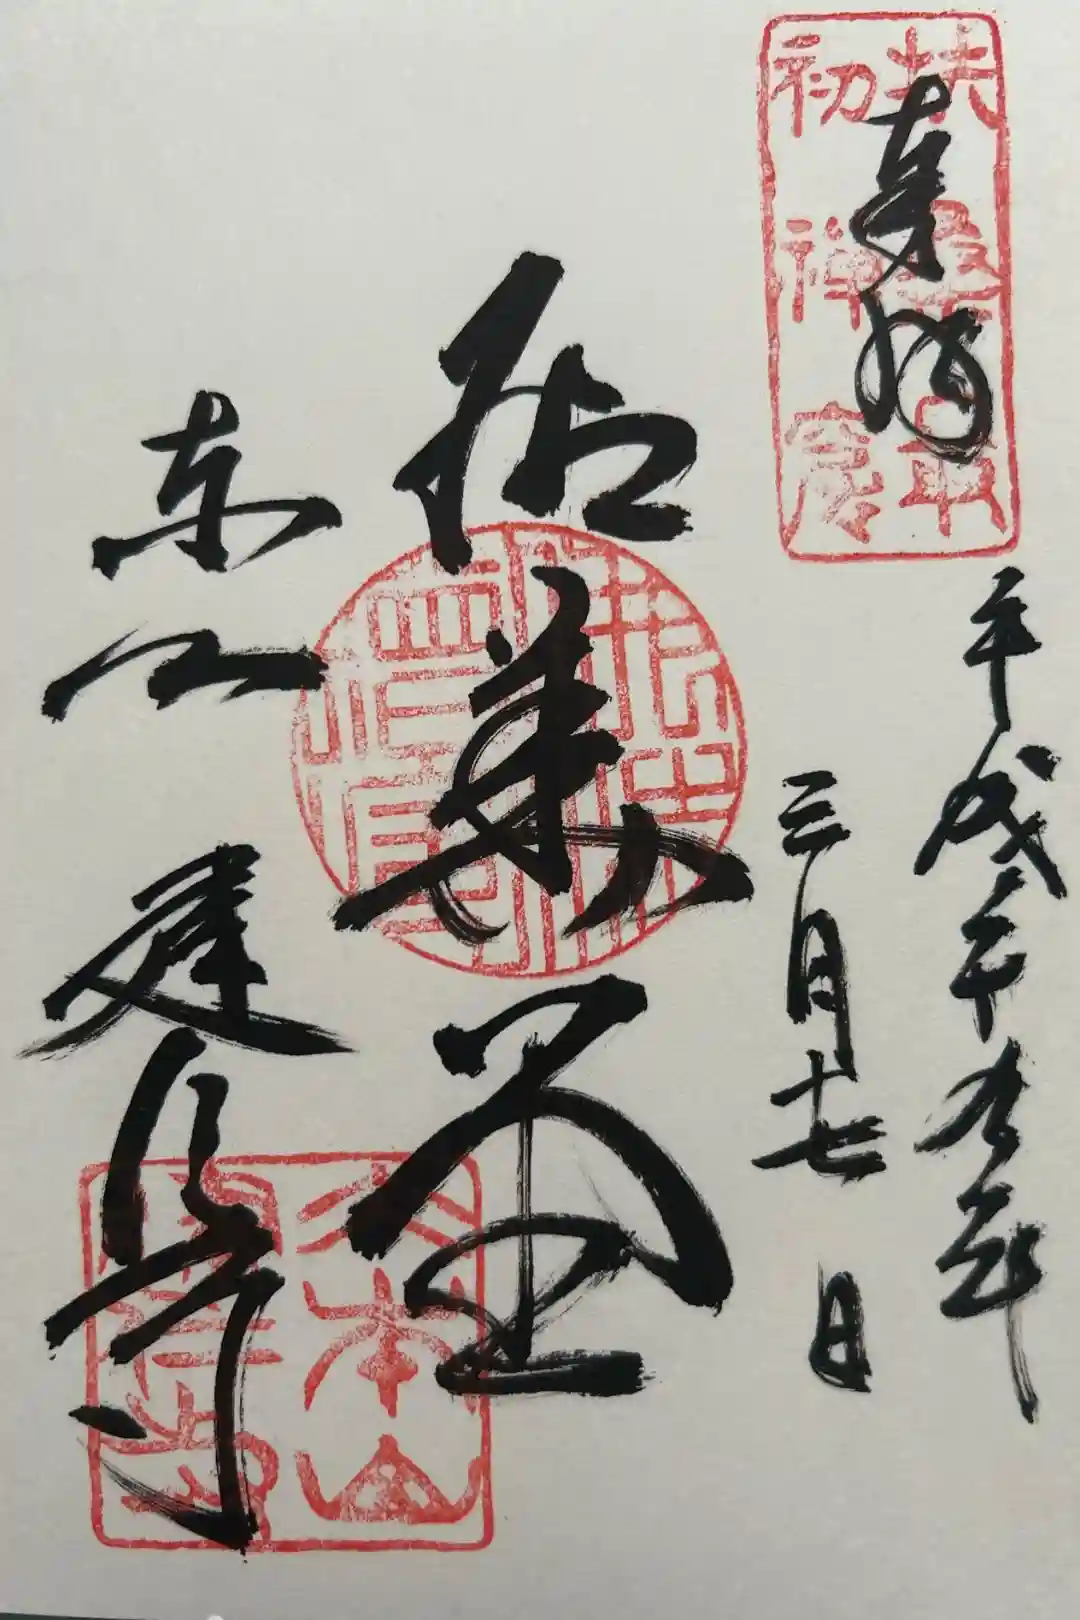 扶桑最
初禅窟
奉拝
平成二十九年
三月十七日
拈華堂
東山
建仁寺
大本山
建仁寺